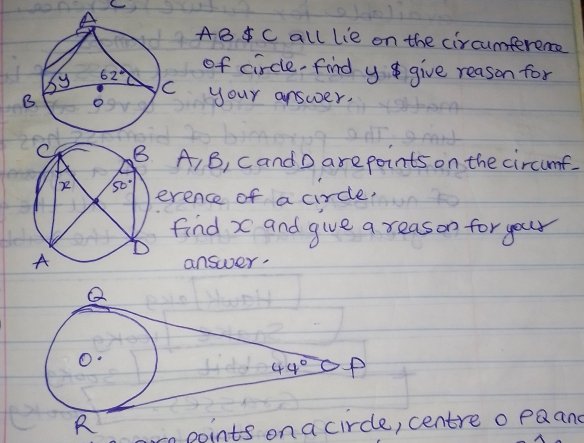 C
A
A B & C all lie on the circumference
of circle. find y & give reason for
your answer.
y 62° C
B O
C B
A, B, C and D are points on the circumf-
x 50°
erence of a circle.
find x and give a reason for your
answer.
A D
Q
O. 44° P
R
points on a circle, centre O PQ and